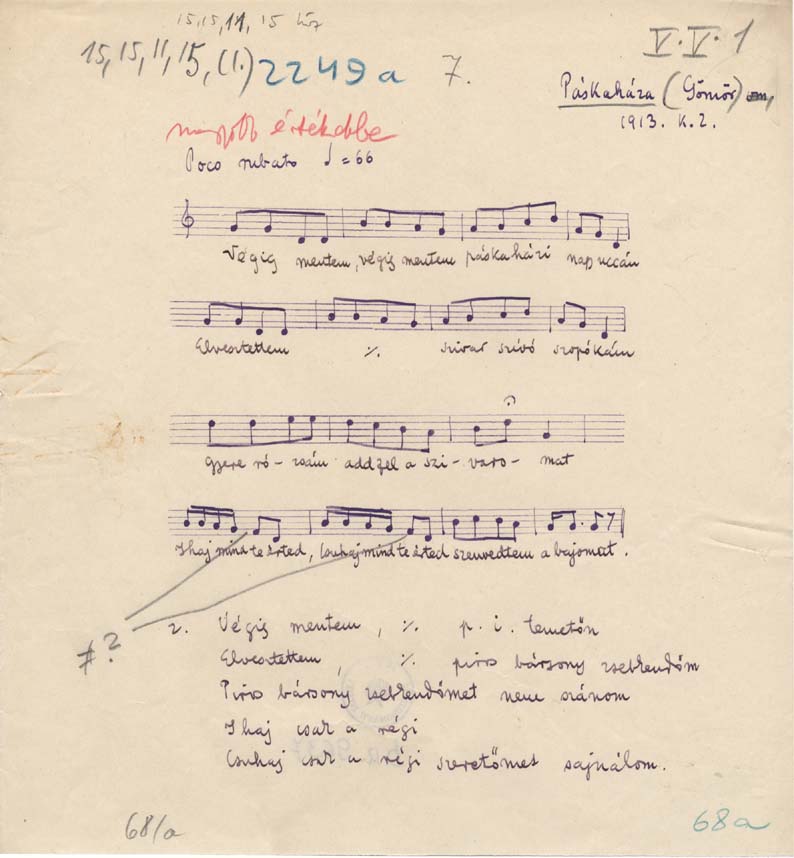 15, 15, 11, 15 köz
15, 15, 11, 15, (1.) 2249a 7.
V. V. 1
Páskaháza (Gömör)
1913. K. Z.
nagyobb értékekbe
Poco rubato ♩ = 66
Végig mentem, végig mentem páskaházi nagy uccán
Elvesztettem ·/. szivar szívó szopókám
gyere ró- zsám addzel a szi- varo- mat
Ihaj mind te érted, csuhaj mind te érted szenvedtem a bajomat.
#?
2. Végig mentem, ·/. p. i. temetőn
Elvesztettem, ·/. piros bársony zsebkendőm
Piros bársony zsebkendőmet nem szánom
Ihaj csak a régi
Csuhaj csak a régi szeretőmet sajnálom.
68/a
68a